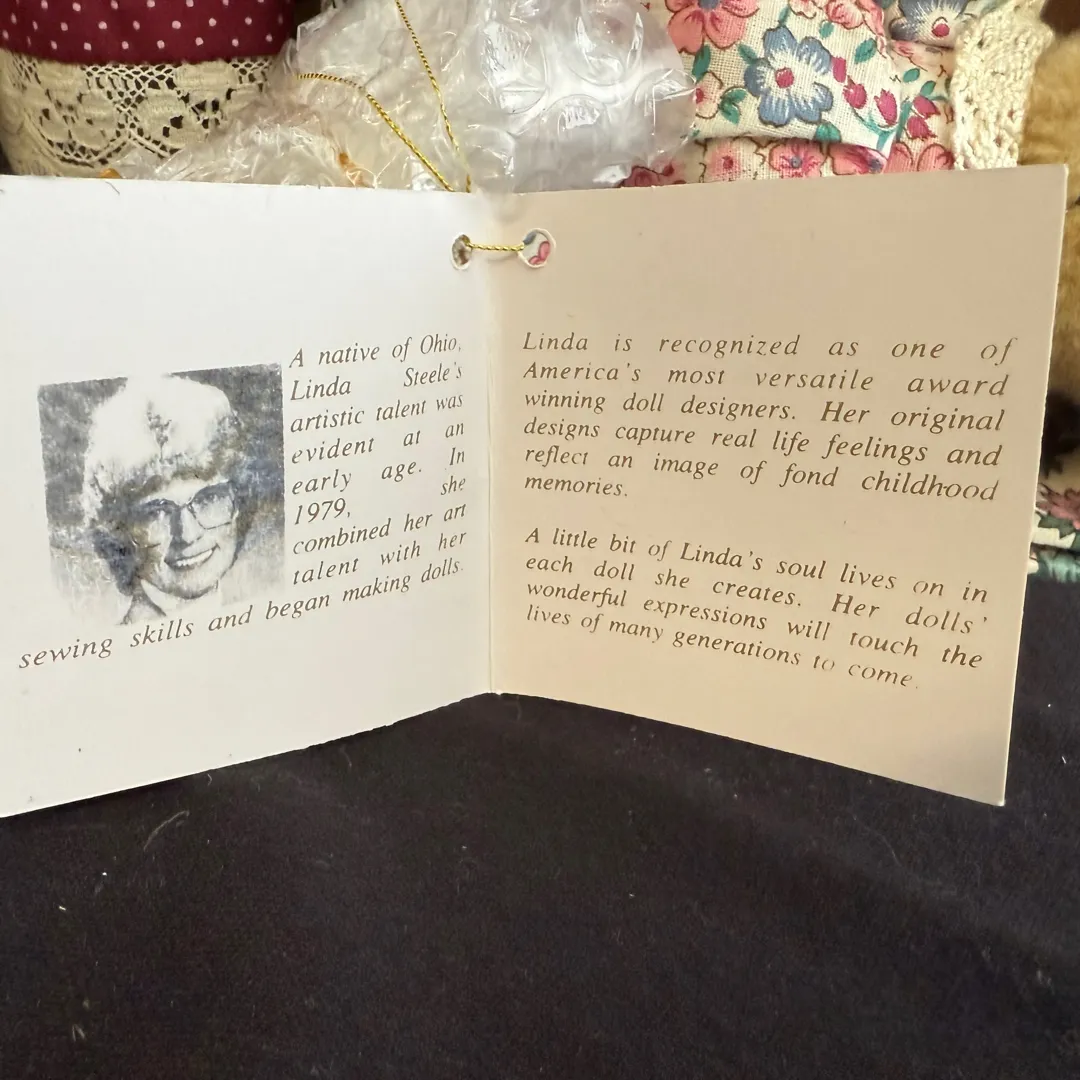 A native of Ohio,
Linda Steele's
artistic talent was
evident at an
early age. In
1979, she
combined her art
talent with her
sewing skills and began making dolls.
Linda is recognized as one of
America's most versatile award
winning doll designers. Her original
designs capture real life feelings and
reflect an image of fond childhood
memories.
A little bit of Linda's soul lives on in
each doll she creates. Her dolls'
wonderful expressions will touch the
lives of many generations to come.